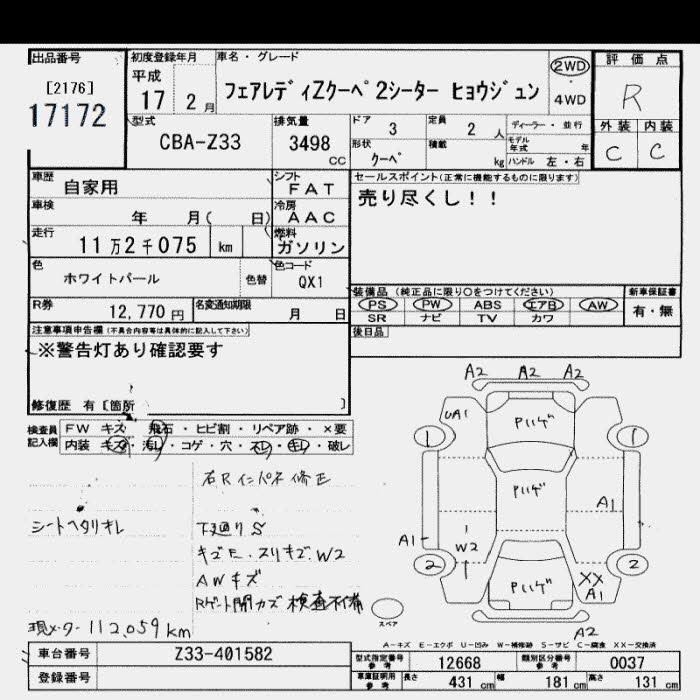 出品番号
[2176]
17172
初度登録年月
平成
17 2 月
車名・グレード
フェアレディZクーペ 2シーター ヒョウジュン
2WD
・
4WD
評価点
R
外装 内装
C C
型式
CBA-Z33
排気量
3498
CC
ドア 3
定員 2 人
ディーラー・並行
形状 クーペ
積載 kg
モデル年式 年
ハンドル 左・右
車歴
自家用
シフト
FAT
車検
年 月( 日)
冷房
AAC
走行
11万2千075 km
燃料
ガソリン
色
ホワイトパール
色替
色コード
QX1
R券
12,770 円
名変通知期限
月 日
セールスポイント(正常に機能するものに限ります)
売り尽くし!!
装備品(純正品に限り○をつけてください)
PS PW ABS エアB AW
SR ナビ TV カワ
新車保証書
有・無
後日品
注意事項申告欄(不具合内容等は具体的に記入して下さい)
※警告灯あり確認要す
修復歴 有〔箇所 〕
検査員
記入欄
FW キズ・飛石・ヒビ割・リペア跡・×要
内装 キズ・汚レ・コゲ・穴・スレ・キレ・破レ
右Rインパネ修正
シートヘタリキレ
下廻りS
キズE、スリキズ、W2
AWキズ
Rゲート開カズ 検査不備
現メーター112,059km
A2 A2 A2
UA1
Pハゲ
1 1
Pハゲ
A1
A1
W2
2 2
Pハゲ
XX
A1
A2
スペア
A-キズ E-エクボ U-凹み W-補修跡 S-サビ C-腐食 XX-交換済
車台番号
Z33-401582
登録番号
型式指定番号
参考
12668
類別区分番号
参考
0037
車庫証明用
参考
長さ 431 cm 幅 181 cm 高さ 131 cm